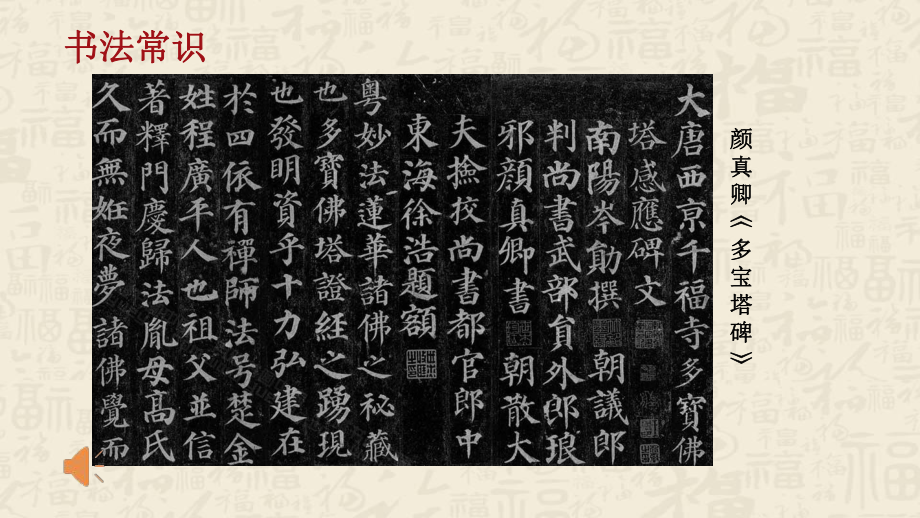 书法常识
大唐西京千福寺多寳佛
塔感應碑文
南陽岑勛撰 朝議郎
判尚書武部貟外郎琅
邪顔真卿書 朝散大
夫撿挍尚書都官郎中
東海徐浩題額
粤妙法蓮華諸佛之秘藏
也多寶佛塔證經之踴現
也發明資乎十力弘建在
於四依有禪師法号楚金
姓程廣平人也祖父並信
著釋門慶歸法胤母高氏
久而無姙夜夢諸佛覺而
颜真卿《多宝塔碑》